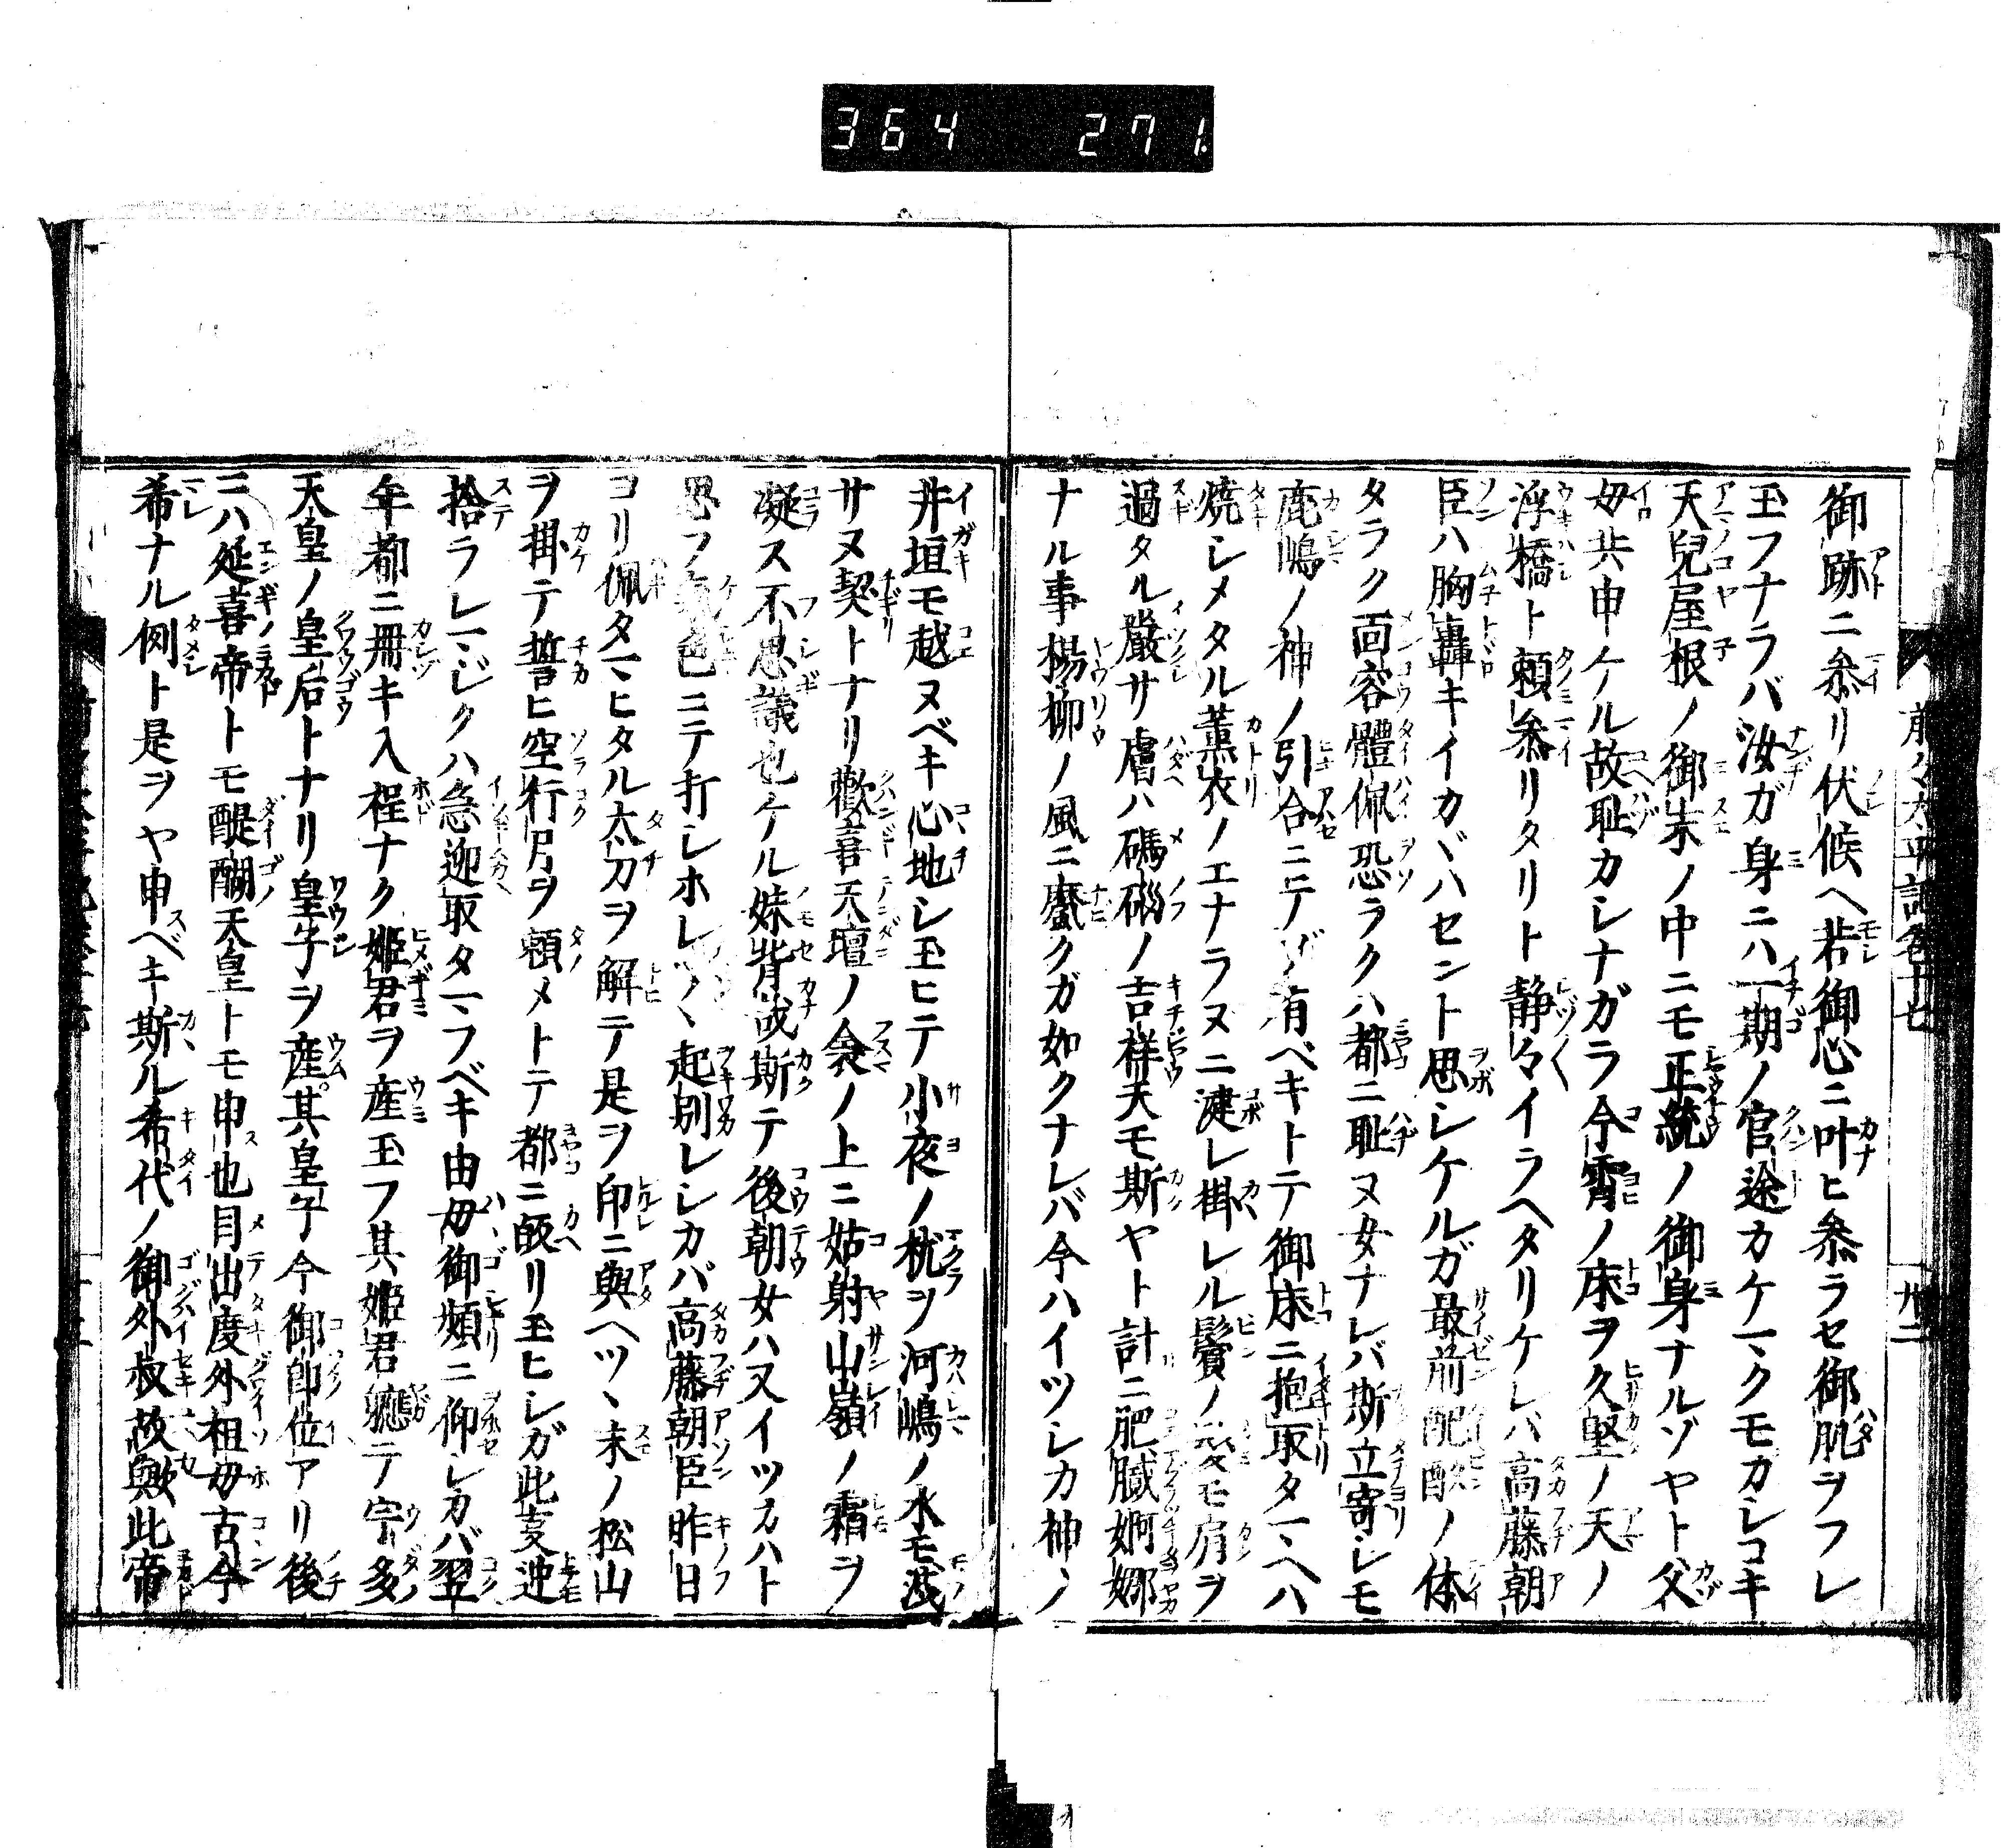 364 271.
前々太平記巻十七
廿二
御跡ニ参リ伏候ヘ若御心ニ叶ヒ参ラセ御肌ヲフレ
玉フナラバ汝ガ身ニハ一期ノ官途カケマクモカシコキ
天兒屋根ノ御末ノ中ニモ正統ノ御身ナルゾヤト父
母共申ケル故耻カシナガラ今宵ノ床ヲ久堅ノ天ノ
浮橋ト頼参リタリト静々イラヘタリケレバ高藤朝
臣ハ胸轟キイカヾハセント思シケルガ最前配酌ノ体
タラク面容體佩恐ラクハ都ニ耻ヌ女ナレバ斯立寄シモ
鹿嶋ノ神ノ引合ニテゾ有ベキトテ御床ニ抱取タマヘハ
焼シメタル薫衣ノエナラヌニ滋レ掛レル鬢ノ髪モ肩ヲ
過タル嚴サ膚ハ碼碯ノ吉祥天モ斯ヤト計ニ肥膩婀娜
ナル事楊柳ノ風ニ靡クガ如クナレバ今ハイツシカ神ノ
井垣モ越ヌベキ心地シ玉ヒテ小夜ノ枕ヲ河嶋ノ水モ洩
サヌ契トナリ歡喜天壇ノ衾ノ上ニ姑射山嶺ノ霜ヲ
凝ス不思議也ケル妹背或斯テ後朝女ハ又イツカハト
思フ氣色ニテ打シホレツヽ起別レシカバ高藤朝臣昨日
ヨリ佩タマヒタル太刀ヲ解テ是ヲ印ニ與ヘツヽ末ノ松山
ヲ掛テ誓ヒ空行月ヲ頼メトテ都ニ皈リ玉ヒシガ此支迚
捨ラレマジクハ急迎取タマフベキ由母御頻ニ仰シカバ翌
年都ニ冊キ入程ナク姫君ヲ産玉フ其姫君軈テ宇多
天皇ノ皇后トナリ皇子ヲ産其皇子今御即位アリ後
ニハ延喜帝トモ醍醐天皇トモ申也目出度外祖母古今
希ナル例ト是ヲヤ申ベキ斯ル希代ノ御外叔故歟此帝